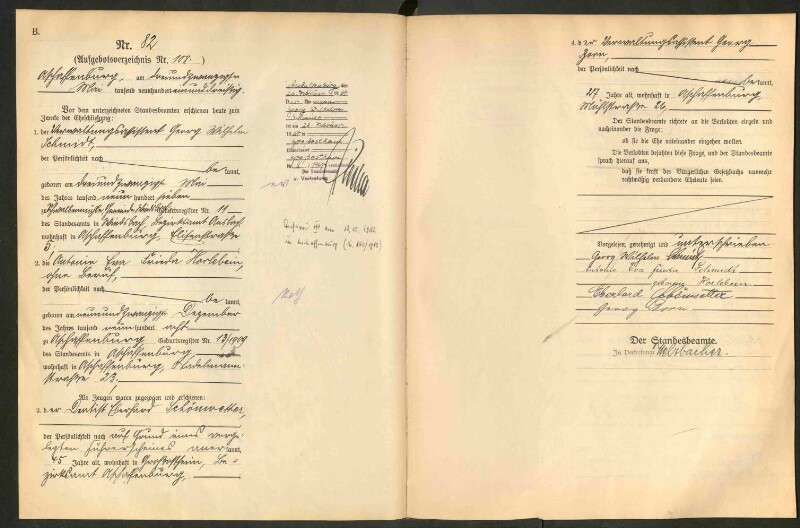 B.
Nr. 82
(Aufgebotsverzeichnis Nr. 108.)
Aschaffenburg, am dreiundzwanzigsten
Mai tausend neunhundert neununddreißig.
Vor dem unterzeichneten Standesbeamten erschienen heute zum
Zwecke der Eheschließung:
1. der Verwaltungsassistent Georg Wilhelm
Schmidt,
der Persönlichkeit nach
be kannt,
geboren am dreiundzwanzigsten Mai
des Jahres tausend neunhundert sieben
zu Gemeinde Windsbach Geburtsregister Nr. 11
des Standesamts in Windsbach, Bezirksamt Ansbach,
wohnhaft in Aschaffenburg, Elisenstraße
5,
2. die Antonie Eva Frieda Horlebein,
ohne Beruf,
der Persönlichkeit nach
be kannt,
geboren am neunundzwanzigsten Dezember
des Jahres tausend neunhundert acht
zu Aschaffenburg, Geburtsregister Nr. 13/1909
des Standesamts in Aschaffenburg
wohnhaft in Aschaffenburg, Stadelmann-
straße 23.
Als Zeugen waren zugezogen und erschienen:
3. der Dentist Eberhard Schönwetter,
der Persönlichkeit nach auf Grund eines vorge-
legten Führerscheines aner kannt,
45 Jahre alt, wohnhaft in Großostheim, Be-
zirksamt Aschaffenburg,
4. der Verwaltungsassistent Georg
Zorn,
der Persönlichkeit nach
be kannt,
27 Jahre alt, wohnhaft in Aschaffenburg,
Mühlstraße 24.
Der Standesbeamte richtete an die Verlobten einzeln und
nacheinander die Frage:
ob sie die Ehe miteinander eingehen wollen.
Die Verlobten bejahten diese Frage, und der Standesbeamte
sprach hierauf aus,
daß sie kraft des Bürgerlichen Gesetzbuchs nunmehr
rechtmäßig verbundene Eheleute seien.
Vorgelesen, genehmigt und unterschrieben
Georg Wilhelm Schmidt
Antonie Eva Frieda Schmidt
geborene Horlebein
Eberhard Schönwetter
Georg Zorn
Der Standesbeamte.
In Vertretung: Welzbacher.